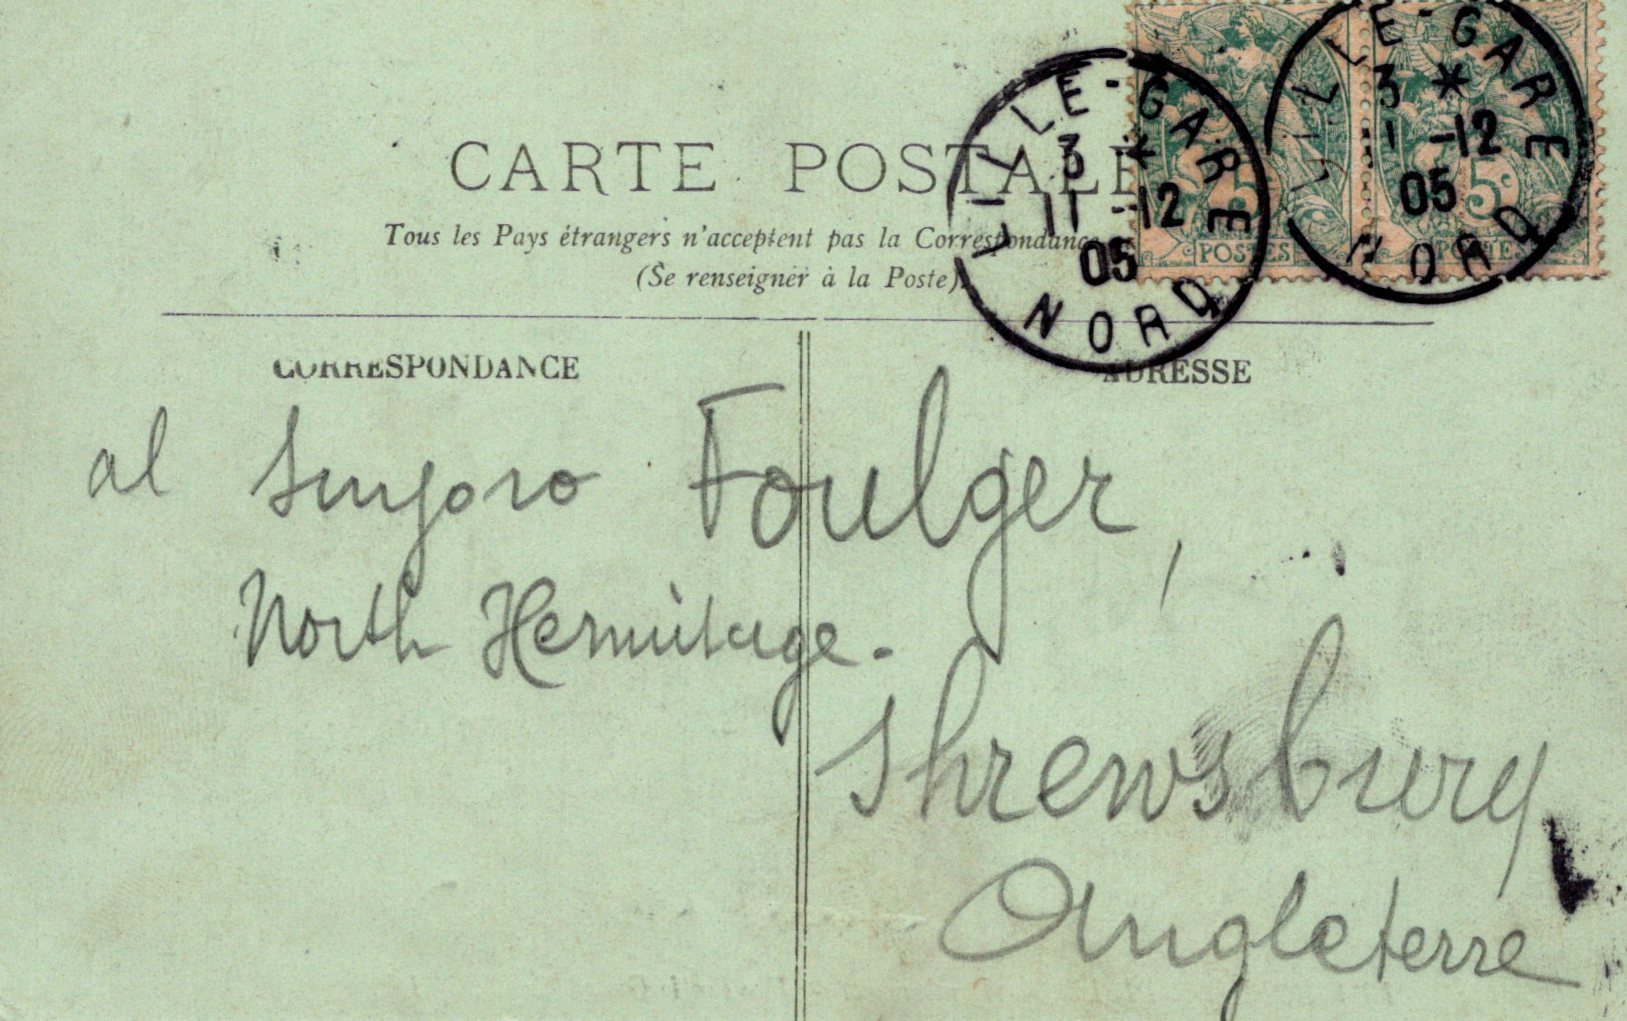 CARTE POSTALE
Tous les Pays étrangers n'acceptent pas la Correspondance
(Se renseigner à la Poste).
LILLE-GARE
3 *
11 -12
05
NORD
LILLE-GARE
3 *
-12
05
NORD
5c
POSTES
5c
POSTES
CORRESPONDANCE
ADRESSE
al Sinjoro Foulger,
North Hermitage.
Shrewsbury
Angleterre